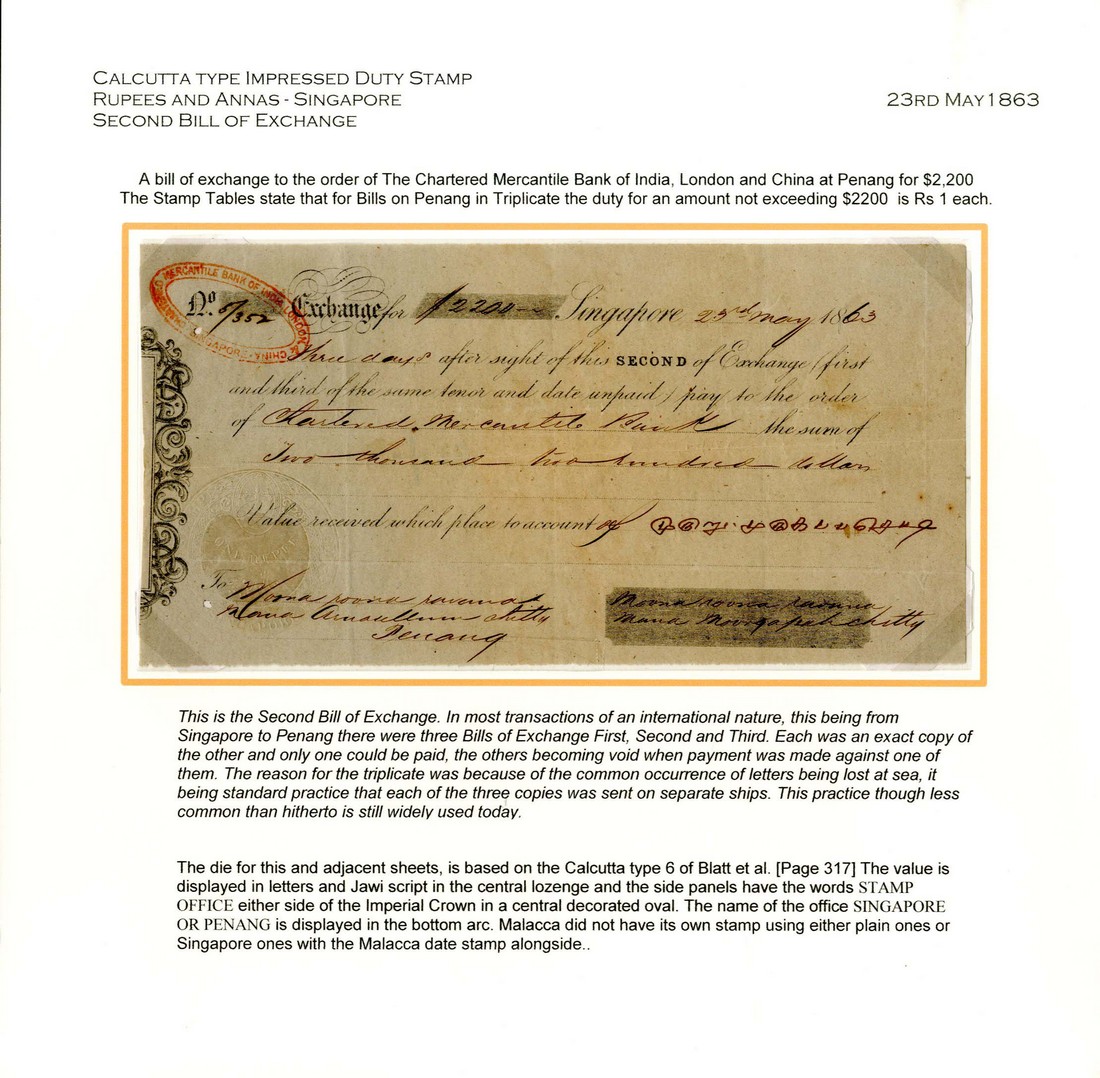 CALCUTTA TYPE IMPRESSED DUTY STAMP
RUPEES AND ANNAS - SINGAPORE
SECOND BILL OF EXCHANGE
23RD MAY 1863
A bill of exchange to the order of The Chartered Mercantile Bank of India, London and China at Penang for $2,200
The Stamp Tables state that for Bills on Penang in Triplicate the duty for an amount not exceeding $2200 is Rs 1 each.
CHARTERED MERCANTILE BANK OF INDIA LONDON & CHINA
SINGAPORE
No 6/352 Exchange for $2200 Singapore 23rd May 1863
Three days after sight of this SECOND of Exchange (first
and third of the same tenor and date unpaid) pay to the order
of Chartered Mercantile Bank the sum of
Two thousand two hundred dollars
Value received which place to account of
To Moona roona ravena
Mana chitty
Penang
Moona roona ravena
Mana chitty
This is the Second Bill of Exchange. In most transactions of an international nature, this being from
Singapore to Penang there were three Bills of Exchange First, Second and Third. Each was an exact copy of
the other and only one could be paid, the others becoming void when payment was made against one of
them. The reason for the triplicate was because of the common occurrence of letters being lost at sea, it
being standard practice that each of the three copies was sent on separate ships. This practice though less
common than hitherto is still widely used today.
The die for this and adjacent sheets, is based on the Calcutta type 6 of Blatt et al. [Page 317] The value is
displayed in letters and Jawi script in the central lozenge and the side panels have the words STAMP
OFFICE either side of the Imperial Crown in a central decorated oval. The name of the office SINGAPORE
OR PENANG is displayed in the bottom arc. Malacca did not have its own stamp using either plain ones or
Singapore ones with the Malacca date stamp alongside..